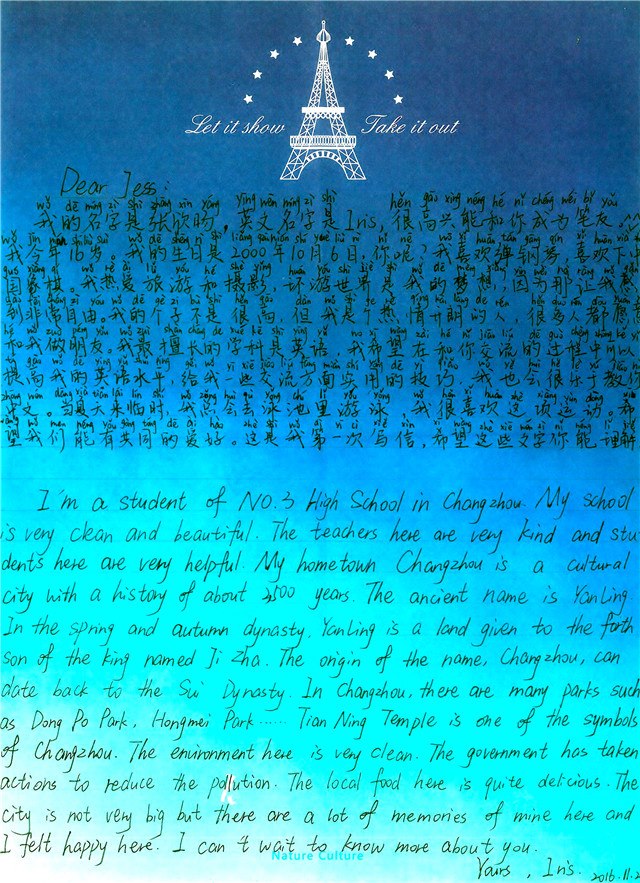 Let it show Take it out
Dear Jess:
我的名字是张欣旸，英文名字是Iris，很高兴能和你成为笔友。
我今年16岁。我的生日是2000年10月6日，你呢？我喜欢弹钢琴，喜欢下
国象棋。我热爱旅游和摄影，环游世界是我的梦想，因为那让我感
到非常自由。我的个子不是很高，但我是个热情开朗的人，很多人都愿意
和我做朋友。我最擅长的学科是英语，我希望在和你交流的过程中可以
提高我的英语水平，给我一些交流方面实用的技巧，我也会很乐于教你
中文。当夏天来临时，我总会去泳池里游泳，我很喜欢这项运动。希
望我们能有共同的爱好。这是我第一次写信，希望这些文字你能理解
I'm a student of NO.3 High School in Changzhou. My school
is very clean and beautiful. The teachers here are very kind and stu-
dents here are very helpful. My hometown Changzhou is a cultural
city with a history of about 2500 years. The ancient name is YanLing.
In the spring and autumn dynasty, YanLing is a land given to the forth
son of the king named Ji Zha. The origin of the name, Changzhou, can
date back to the Sui Dynasty. In Changzhou, there are many parks such
as Dong Po Park, Hongmei Park …… Tian Ning Temple is one of the symbols
of Changzhou. The environment here is very clean. The government has taken
actions to reduce the pollution. The local food here is quite delicious. The
city is not very big but there are a lot of memories of mine here and
I felt happy here. I can't wait to know more about you.
Nature Culture
Yours, Iris.
2016.11.2